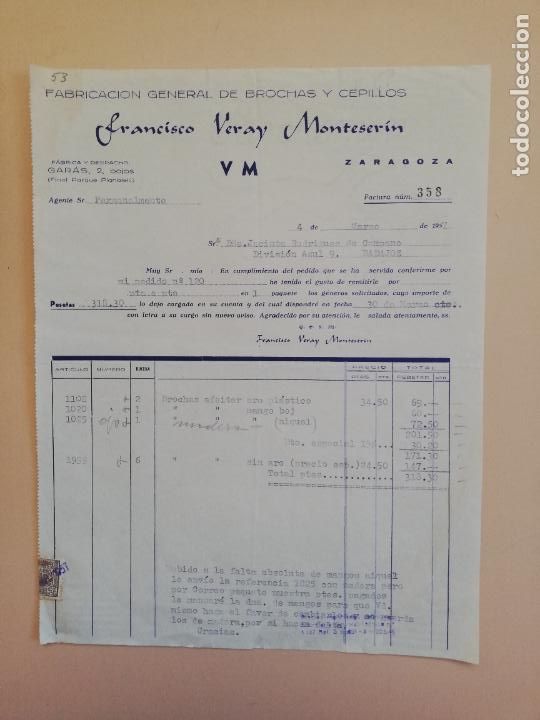 53
FABRICACION GENERAL DE BROCHAS Y CEPILLOS
Francisco Veray Monteserín
VM
ZARAGOZA
FÁBRICA Y DESPACHO
GARÁS, 2, bajos
(Final Parque Pignatelli)
Agente Sr. Personalmente
Factura núm. 358
4 de Marzo de 1957
Sra Dña. Jacinta Rodriguez de Campano
División Azul 9. BADAJOZ
Muy Sr mío: En cumplimiento del pedido que se ha servido conferirme por
mi pedido nº 120 he tenido el gusto de remitirle por
en 1 paquete los géneros solicitados, cuyo importe de
Pesetas 318.30 le dejo cargado en su cuenta y del cual dispondré en fecha 30 de Marzo cte.
con letra a su cargo sin nuevo aviso. Agradecido por su atención, le saluda atentamente, ss.
q. e. s. m.
Francisco Veray Monteserín
ARTICULO NUMERO PRECIO TOTAL
PTAS. CTS. PESETAS CTS.
1102 2 Brochas afeitar aro plástico 34.50 69.—
1020 1 " " mango boj 60.—
1025 1 " " (niquel) 72.50
madera
201.50
Dto. especial 15% 30.20
171.30
1999 6 " " sin aro (precio esp.) 24.50 147.—
Total ptas. 318.30
Debido a la falta absoluta de mangos niquel
le envío la referencia 1025 con madera pero
por Correo paquete muestra ptes. pagados
le mandaré la dna. de mangos para que Vd.
mismo haga el favor de cambiarlos y se
los de madera, por si hacen falta.
Gracias.
todocoleccion